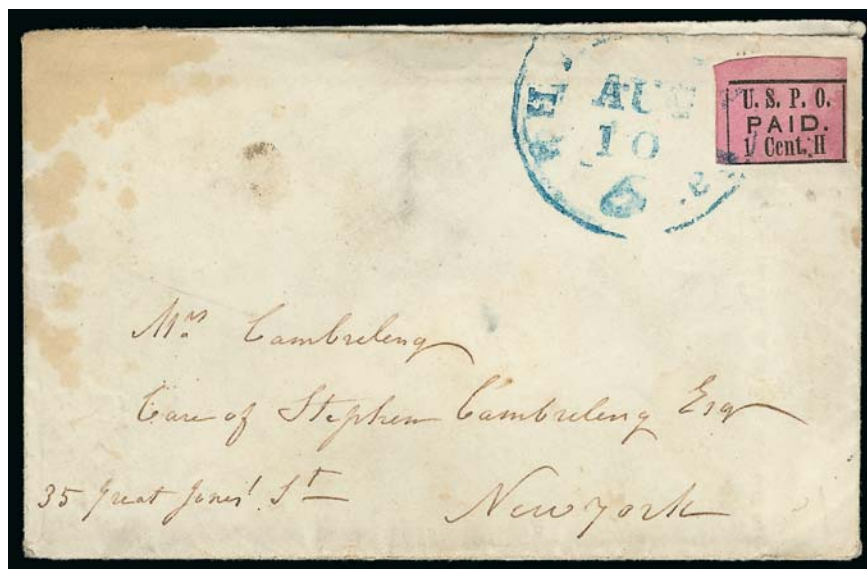 AUG
10
6
U. S. P. O.
PAID.
1 Cent. H
Mrs Cambreleng
Care of Stephen Cambreleng Esq
35 Great Jones' St
New York